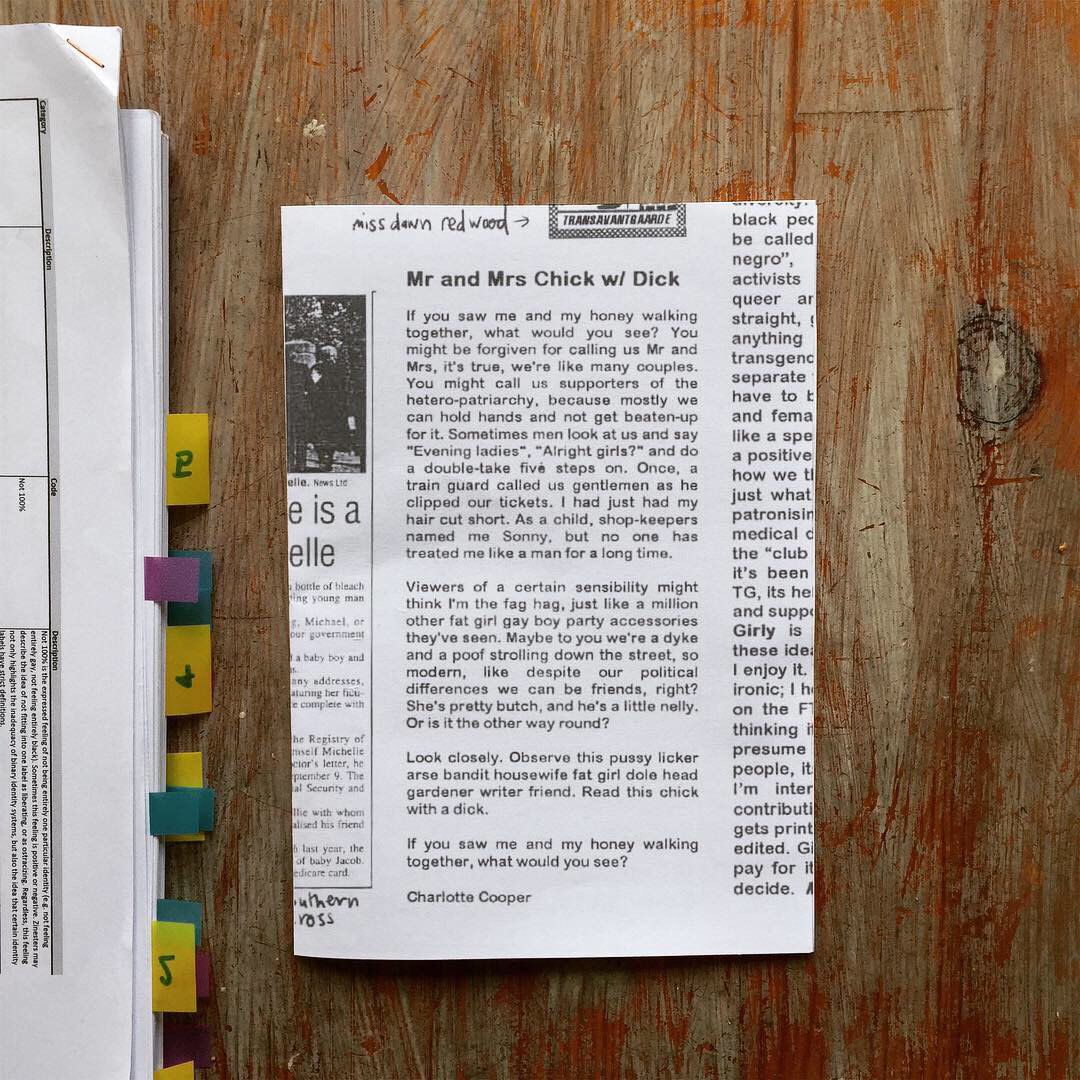 Category
Description
Code
Description
Not 100%
Not 100% is the expressed feeling of not being entirely one particular identity (e.g. not feeling
entirely gay, not feeling entirely black). Sometimes this feeling is positive or negative. Zinesters may
describe the idea of not fitting into one label as liberating, or as ostracizing. Regardless, this feeling
not only highlights the inadequacy of binary identity systems, but also the idea that certain identity
labels have strict definitions.
4
5
miss dawn redwood →
TRANSAVANTGAARDE
elle. News Ltd
e is a
elle
bottle of bleach
ing young man
g, Michael, or
our government
a baby boy and
s.
any addresses,
aturing her fictu-
e complete with
he Registry of
mself Michelle
ctor's letter, he
ptember 9. The
al Security and
llie with whom
alised his friend
last year, the
of baby Jacob.
edicare card.
uthern
ross
Mr and Mrs Chick w/ Dick
If you saw me and my honey walking
together, what would you see? You
might be forgiven for calling us Mr and
Mrs, it's true, we're like many couples.
You might call us supporters of the
hetero-patriarchy, because mostly we
can hold hands and not get beaten-up
for it. Sometimes men look at us and say
"Evening ladies", "Alright girls?" and do
a double-take five steps on. Once, a
train guard called us gentlemen as he
clipped our tickets. I had just had my
hair cut short. As a child, shop-keepers
named me Sonny, but no one has
treated me like a man for a long time.
Viewers of a certain sensibility might
think I'm the fag hag, just like a million
other fat girl gay boy party accessories
they've seen. Maybe to you we're a dyke
and a poof strolling down the street, so
modern, like despite our political
differences we can be friends, right?
She's pretty butch, and he's a little nelly.
Or is it the other way round?
Look closely. Observe this pussy licker
arse bandit housewife fat girl dole head
gardener writer friend. Read this chick
with a dick.
If you saw me and my honey walking
together, what would you see?
Charlotte Cooper
diversity.
black pec
be called
negro",
activists
queer ar
straight, g
anything
transgenc
separate
have to b
and fema
like a spe
a positive
how we th
just what
patronisin
medical d
the "club
it's been
TG, its he
and suppo
Girly is
these idea
I enjoy it.
ironic; I h
on the FT
thinking i
presume
people, it
I'm inter
contributi
gets print
edited. Gi
pay for it
decide.